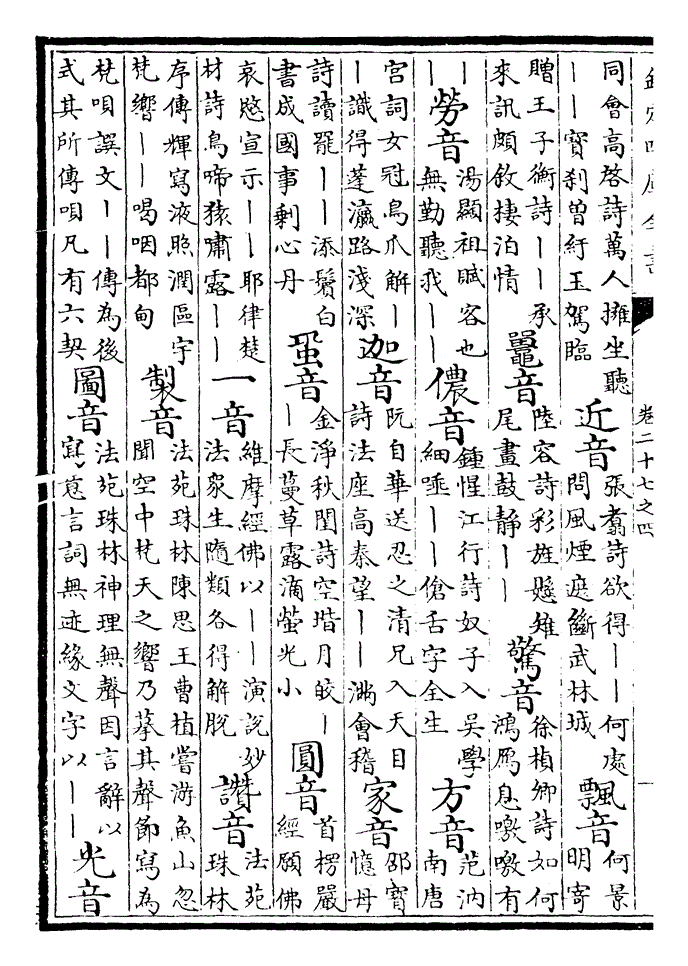 欽定四庫全書
卷二十七之四
同會高啓詩萬人擁坐聽——寳刹曽紆玉駕臨 近音 張翥詩欲得——何處問風煙遮斷武林城 飄音 何景明寄
贈王子衡詩——承來訊頗敘棲泊情 鼉音 陸容詩彩旌懸雉尾畫鼓静—— 驚音 徐楨卿詩如何鴻鴈息嗷嗷有
—— 勞音 湯顯祖賦客也無勤聽我—— 儂音 鍾惺江行詩奴子入吳學細唾——傖舌字全生 方音 范汭南唐
宮詞女冠鳥爪解——識得蓬瀛路淺深 迦音 阮自華送忍之清兄入天目詩法座高泰望——滿會稽 家音 邵寳憶母
詩讀罷——添鬢白書成國事剩心丹 蛩音 金淨秋閨詩空堦月皎——長蔓草露滴螢光小 圓音 首楞嚴經願佛
哀愍宣示——耶律楚材詩鳥啼猿嘯露—— 一音 維摩經佛以——演說妙法衆生隨類各得解脫 讚音 法苑珠林
序傳輝寫液照潤區宇梵響——喝咽都甸 製音 法苑珠林陳思王曹植嘗游魚山忽聞空中梵天之響乃摹其聲節寫為
梵唄譔文——傳為後式其所傳唄凡有六契 圖音 法苑珠林神理無聲因言辭以寫意言詞無迹緣文字以—— 光音